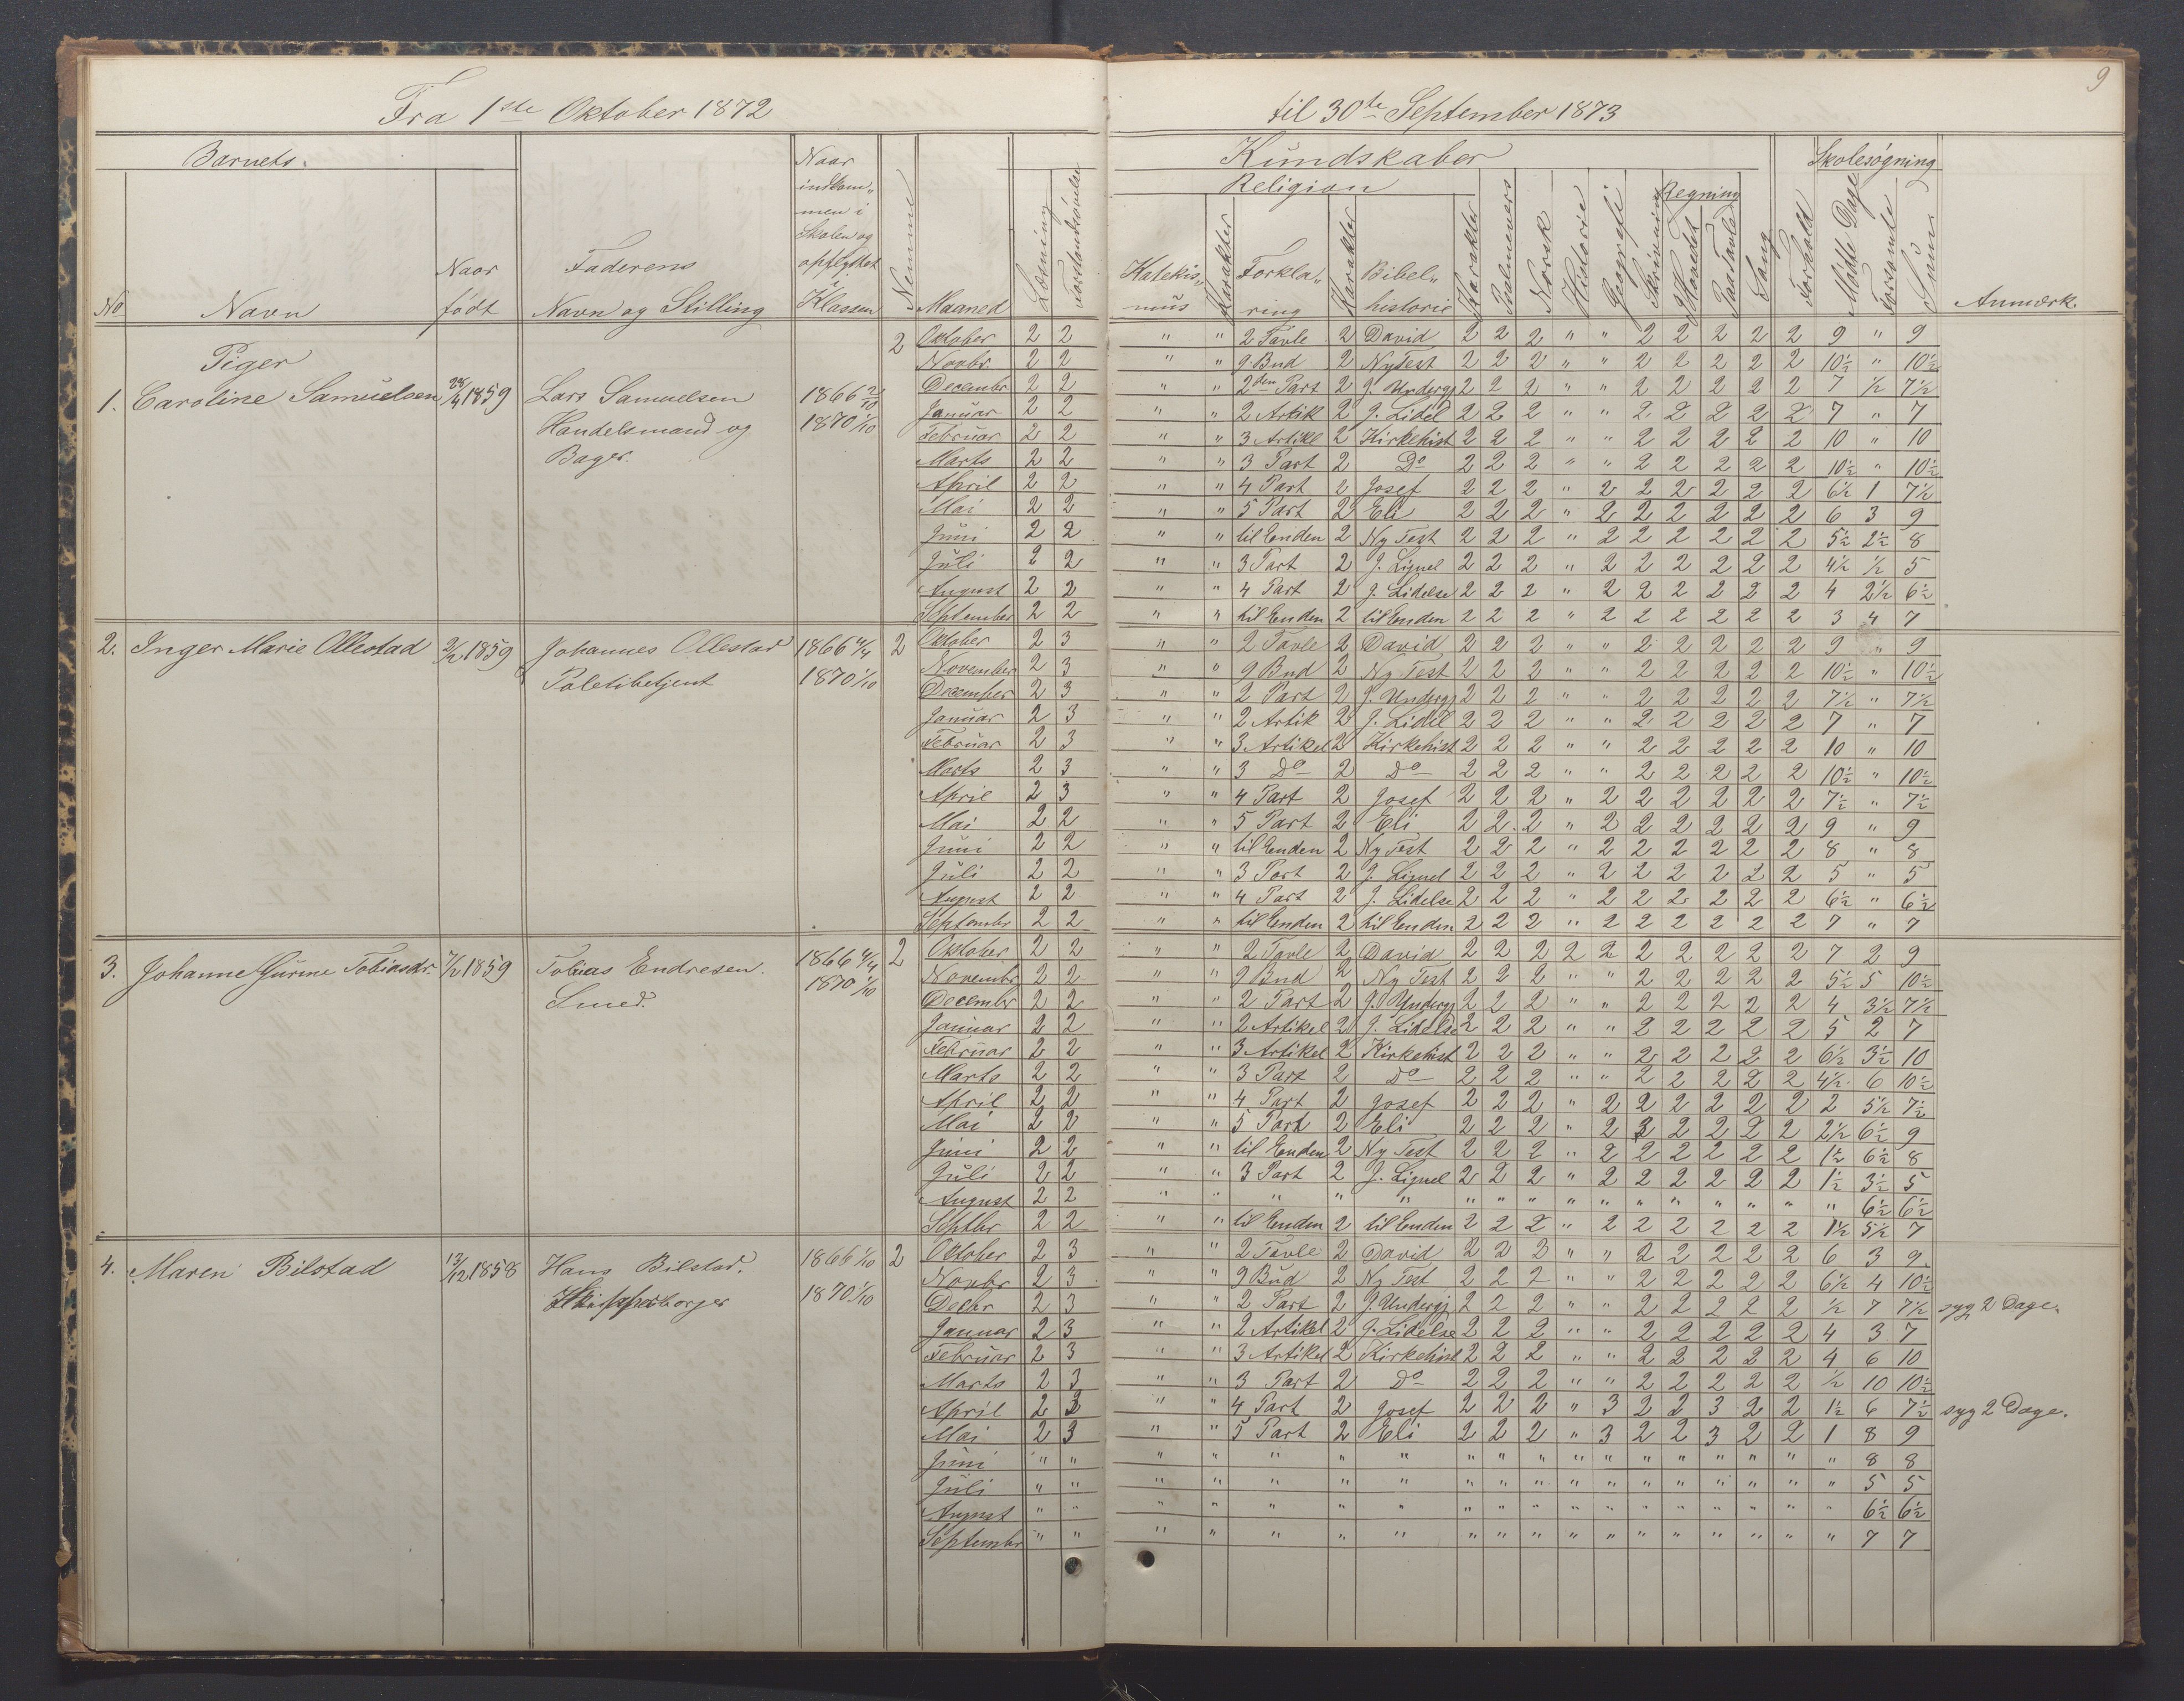 9
Fra 1ste Oktober 1872 til 30te September 1873
Barnets.
No
Navn
Naar født
Faderens Navn og Stilling
Naar indkommen i Skolen og opflyttet i Klassen
Nemme
Maaned
Læsning
Forstandsøvelse
Kundskaber
Religion
Katekis„ mus
Karakter
Forkla„ ring
Karakter
Bibel„ historie
Karakter
Psalmevers
Norsk
Historie
Geografi
Skrivning
Regning
Hovedet
Paa Tavle
Sang
Forhold
Skolesøgning
Mødte Dage
Forsømte
Sum
Anmærk.
Piger
1. Caroline Samuelsen 28/4 1859 Lars Samuelsen Handelsmand og Bager. 1870 1/10 2
Oktober 2 2 " " 2 Tavle 2 David 2 2 2 " " 2 2 2 2 2 9 " 9
Novbr 2 2 " " 9 Bud 2 Ny Test 2 2 2 " " 2 2 2 2 2 10½ " 10½
Decembr 2 2 " " 2den Part 2 J. Undergj 2 2 2 " " 2 2 2 2 2 7 ½ 7½
Januar 2 2 " " 2 Artik 2 J. Lidel 2 2 2 " " 2 2 2 2 2 7 " 7
Februar 2 2 " " 3 Artikl 2 Kirkehist 2 2 2 " " 2 2 2 2 2 10 " 10
Marts 2 2 " " 3 Part 2 Do 2 2 2 " " 2 2 2 2 2 10½ " 10½
April 2 2 " " 4 Part 2 Josef 2 2 2 " 2 2 2 2 2 2 6½ 1 7½
Mai 2 2 " " 5 Part 2 Eli 2 2 2 " 2 2 2 2 2 2 6 3 9
Juni 2 2 " " til Enden 2 Ny Test 2 2 2 " 2 2 2 2 2 2 5½ 2½ 8
Juli 2 2 " " 3 Part 2 J. Lignel 2 2 2 " 2 2 2 2 2 2 4½ ½ 5
August 2 2 " " 4 Part 2 J. Lidelse 2 2 2 " 2 2 2 2 2 2 4 2½ 6½
September 2 2 " " til Enden 2 til Enden 2 2 2 " 2 2 2 2 2 2 3 4 7
2. Inger Marie Ollestad 1859 Johannes Ollestad Politibetjent 1866 4/4 1870 1/10 2
Oktober 2 3 " " 2 Tavle 2 David 2 2 2 " " 2 2 2 2 2 9 " 9
November 2 3 " " 9 Bud 2 Ny Test 2 2 2 " " 2 2 2 2 2 10½ " 10½
December 2 3 " " 2 Part 2 J. Undergj 2 2 2 " " 2 2 2 2 2 7½ " 7½
Januar 2 3 " " 2 Artik 2 J. Lidel 2 2 2 " " 2 2 2 2 2 7 " 7
Februar 2 3 " " 3 Artikel 2 Kirkehist 2 2 2 " " 2 2 2 2 2 10 " 10
Marts 2 3 " " 3 Do 2 Do 2 2 2 " " 2 2 2 2 2 10½ " 10½
April 2 3 " " 4 Part 2 Josef 2 2 2 " 2 2 2 2 2 2 7½ " 7½
Mai 2 2 " " 5 Part 2 Eli 2 2 2 " 2 2 2 2 2 2 9 " 9
Juni 2 2 " " til Enden 2 Ny Test 2 2 2 " 2 2 2 2 2 2 8 " 8
Juli 2 2 " " 3 Part 2 J. Lignel 2 2 2 " 2 2 2 2 2 2 5 " 5
August 2 2 " " 4 Part 2 J. Lidelse 2 2 2 " 2 2 2 2 2 2 6½ " 6½
Septembr 2 2 " " til Enden 2 til Enden 2 2 2 " 2 2 2 2 2 2 7 " 7
3. Johanne Gurine Tobiasdr. 1859 Tobias Endresen. Smed. 1866 4/4 1870 1/10 2
Oktober 2 2 " " 2 Tavle 2 David 2 2 2 2 2 2 2 2 2 2 7 2 9
Novembr 2 2 " " 9 Bud 2 Ny Test 2 2 2 " " 2 2 2 2 2 5½ 5 10½
Decembr 2 2 " " 2 Part 2 J. Undergj 2 2 2 " " 2 2 2 2 2 4 3½ 7½
Januar 2 2 " " 2 Artikel 2 J. Lidelse 2 2 2 " " 2 2 2 2 2 5 2 7
Februar 2 2 " " 3 Artikel 2 Kirkehist 2 2 2 " " 2 2 2 2 2 6½ 3½ 10
Marts 2 2 " " 3 Part 2 Do 2 2 2 " " 2 2 2 2 2 4½ 6 10½
April 2 2 " " 4 Part 2 Josef 2 2 2 " 2 2 2 2 2 2 2 5½ 7½
Mai 2 2 " " 5 Part 2 Eli 2 2 2 " 2 2 2 2 2 2½ 6½ 9
Juni 2 2 " " til Enden 2 Ny Test 2 2 2 " 2 2 2 2 2 2 1½ 6½ 8
Juli 2 2 " " 3 Part 2 J. Lignel 2 2 2 " 2 2 2 2 2 2 1½ 3½ 5
August 2 2 " " " " " " " " " " " " " " " " 6½ 6½
Septbr 2 2 " " til Enden 2 til Enden 2 2 2 " 2 2 2 2 2 2 1½ 5½ 7
4. Maren Bilstad 13/12 1858 Hans Bilstad. 1866 1/10 1870 1/10 2
Oktober 2 3 " " 2 Tavle 2 David 2 2 2 " " 2 2 2 2 2 6 3 9
Novbr 2 3 " " 9 Bud 2 Ny Test 2 2 2 " " 2 2 2 2 2 6½ 4 10½
Decbr 2 3 " " 2 Part 2 J. Undergj 2 2 2 " " 2 2 2 2 2 ½ 7 7½ syg 2 Dage.
Januar 2 3 " " 2 Artikel 2 J. Lidelse 2 2 2 " " 2 2 2 2 2 4 3 7
Februar 2 3 " " 3 Artikel 2 Kirkehist 2 2 2 " " 2 2 2 2 2 4 6 10
Marts 2 3 " " 3 Part 2 Do 2 2 2 " " 2 2 2 2 2 ½ 10 10½
April 2 3 " " 4 Part 2 Josef 2 2 2 " 3 2 2 3 2 2 1½ 6 7½ syg 2 Dage.
Mai 2 3 " " 5 Part 2 Eli 2 2 2 " 3 2 2 3 2 2 1 8 9
Juni " " " " " " " " " " " " " " " " " " " 8 8
Juli " " " " " " " " " " " " " " " " " " " 5 5
August " " " " " " " " " " " " " " " " " " " 6½ 6½
Septembr " " " " " " " " " " " " " " " " " " " 7 7